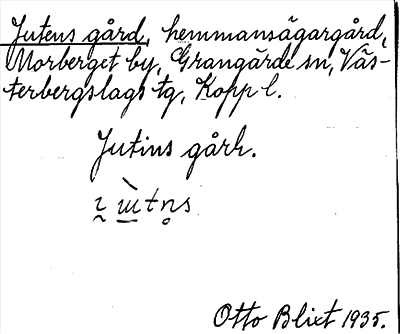 Jutens gård, hemmansägargård,
Morberget by, Grangärde sn, Väs-
terbergslags tg, Kopp l.
Jutins gårh.
Otto Blixt 1935.